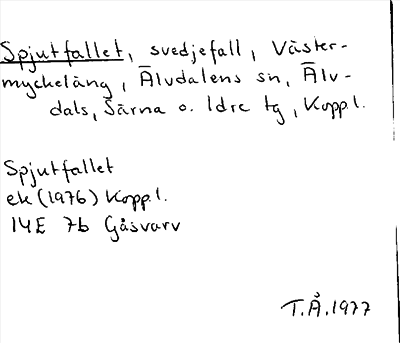 Spjutfallet, svedjefall, Väster-
myckeläng, Älvdalens sn, Älv-
dals, Särna o. Idre tg, Koppl.
Spjutfallet
ek (1976) Koppl.
14E 7b Gåsvarv
T.Å.1977